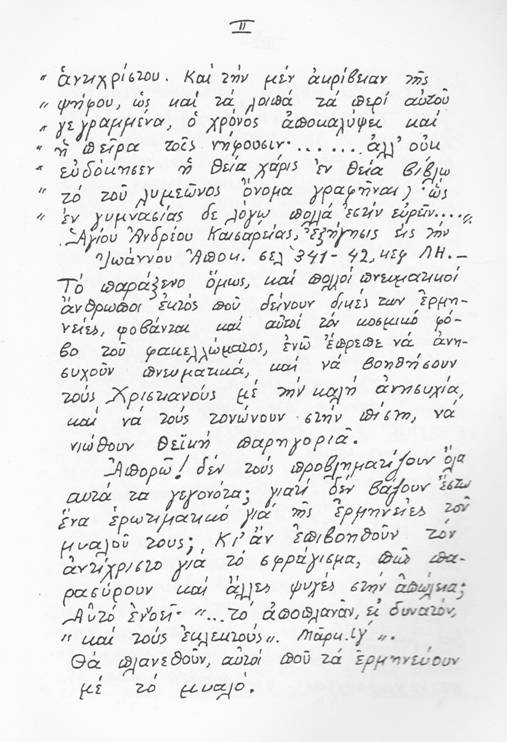 II
„ ἀντιχρίστου. Καί τήν μέν ἀκρίβειαν τῆς
„ ψήφου, ὡς καί τά λοιπά τά περί αὐτοῦ
„ γεγραμμένα, ὁ χρόνος ἀποκαλύψει καί
„ ἡ πεῖρα τοῖς νήφουσιν........ἀλλ' οὐκ
„ εὐδόκησεν ἡ θεία χάρις ἐν θεία βίβλω
„ τό τοῦ λυμεῶνος ὄνομα γραφῆναι, ὡς
„ ἐν γυμνασίας δε λόγω πολλά ἐστίν εὑρεῖν....„
Ἁγίου Ἀνδρέου Καισαρείας, ἐξήγησις εἰς τήν
Ἰωάννου Ἀποκ. σελ 341-42, κεφ ΛΗ.—
Τό παράξενο ὅμως, καί πολλοί πνευματικοί
ἄνθρωποι ἐκτός πού δείνουν δικές των ἑρμη-
νείες, φοβάνται καί αὐτοί τόν κοσμικό φό-
βο τοῦ φακελλώματος, ἐνῶ ἔπρεπε νά ἀνη-
συχοῦν πνευματικά, καί νά βοηθήσουν
τούς Χριστιανούς μέ τήν καλή ἀνησυχία,
καί νά τούς τονώνουν στήν πίστη, νά
νιώθουν θεϊκή παρηγοριά.
Ἀπορῶ! δέν τούς προβληματίζουν ὅλα
αυτά τα γεγονότα; γιατί δέν βάζουν ἔστω
ἕνα ἐρωτιματικό γιά τῆς ἑρμηνεῖες τοῦ
μυαλοῦ τους; Κι' ἄν ἐπιβοηθοῦν τόν
ἀντίχριστο γιά τό σφράγισμα, πῶς πα-
ρασύρουν καί ἄλλες ψυχές στήν ἀπώλεια;
Αὐτό ἐνοεῖ- „...τό ἀποπλανᾶν, εἰ δυνατόν,
„ καί τούς ἐκλεκτούς„. Μάρκ. ιγ' „.
Θά πλανεθοῦν, αὐτοί πού τά ἑρμηνεύουν
μέ τό μυαλό.